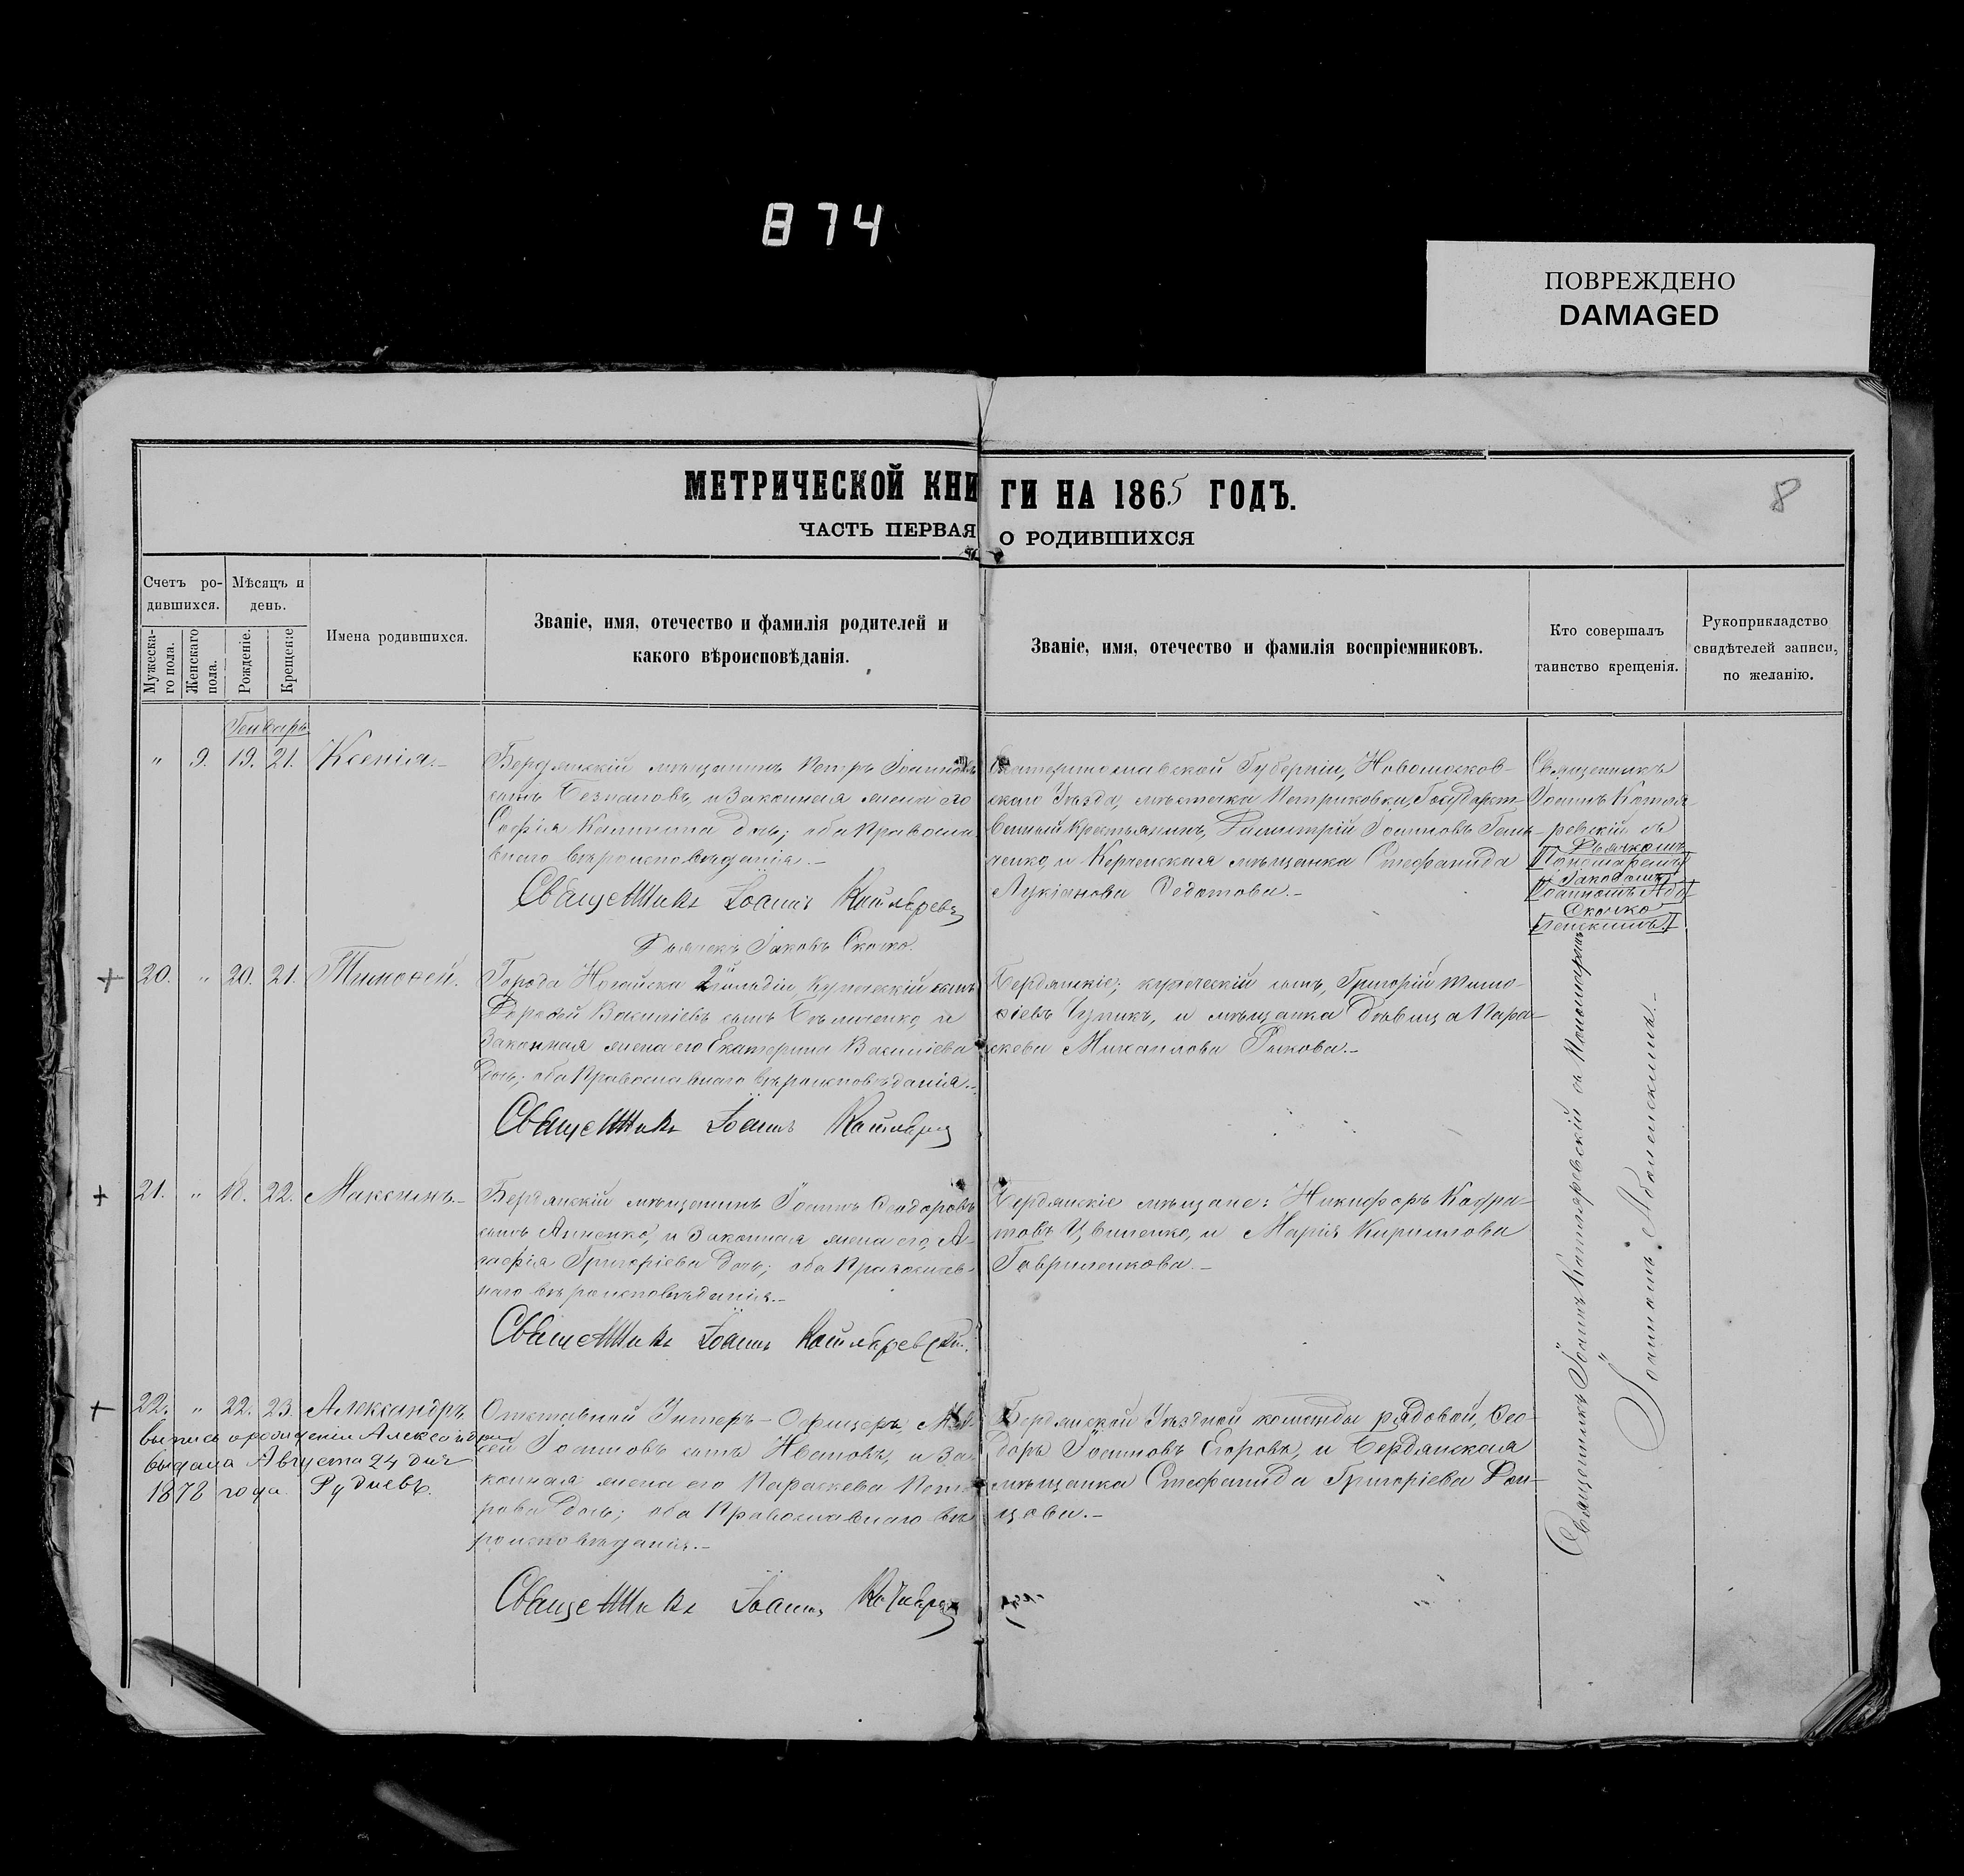 874
ПОВРЕЖДЕНО
DAMAGED
МЕТРИЧЕСКОЙ КНИГИ НА 1865 ГОДЪ.
8
ЧАСТЬ ПЕРВАЯ О РОДИВШИХСЯ
Счетъ ро-
дившихся.
Мужеска-
го пола.
Женскаго
пола.
Мѣсяцъ и
день.
Рожденіе.
Крещеніе
Имена родившихся.
Званіе, имя, отечество и фамилія родителей и
какого вѣроисповѣданія.
Званіе, имя, отечество и фамилія воспріемниковъ.
Кто совершалъ
таинство крещенія.
Рукоприкладство
свидѣтелей записи,
по желанію.
Генварь
" 9. 19. 21. Ксенія.-
Бердянскій мѣщанинъ Петръ Іоанновъ
сынъ и Законная жена его
Софія дочь; оба Правосла
внаго вѣроисповѣданія.-
Священникъ Іоаннъ
Дьячекъ Іаковъ Скочко.
Екатеринославской Губерніи, Новомосков-
скаго Уѣзда, мѣстечка Петриковки, Государст-
венный Крестьянинъ, Димитрій Іоанновъ
ченко, и Керченская мѣщанка Стефанида
Лукіанова Федотова.-
Священникъ
Іоаннъ Котля-
ревскій съ
Дьячкомъ
Пономаремъ
Іаковомъ
Іоанномъ Або
Скочко
ленскимъ
20. " 20. 21. Тимофей.
Города Ногайска 2й Гильдіи, Купеческій сынъ
Василіевъ сынъ и
Законная жена его Екатерина Василіева
Дочь; оба Православнаго вѣроисповѣданія.-
Священникъ Іоаннъ
Бердянскіе; купеческій сынъ, Григорій Тимо-
фіевъ и мѣщанка Дѣвица Пара-
скева Михаилова Рыкова.-
21. " 18. 22. Максимъ.-
Бердянскій мѣщанинъ Іоаннъ Феодоровъ
сынъ Анненко, и Законная жена его, А-
гафія Григоріева Дочь; оба Православ-
наго вѣроисповѣданія.-
Священникъ Іоаннъ Котляревскій.
Бердянскіе мѣщане: Никифоръ Кодра-
товъ Цвиленко, и Марія Кириллова
Гавриленкова.-
22. " 22. 23. Александръ
выпись о рожденіи Александра
выдана Августа 24 дня
1878 года Рудневъ.
Отставной Унтеръ-Офицеръ,
сей Іоанновъ сынъ Ивановъ, и За-
конная жена его Параскева Пет-
рова Дочь; оба Православнаго вѣ
роисповѣданія.-
Священникъ Іоаннъ
Бердянской Уѣздной команды рядовой, Фео-
доръ Іоанновъ Егоровъ, и Бердянская
мѣщанка Стефанида Григоріева
цова.-
Священникъ Іоаннъ Котляревскій съ Пономаремъ
Іоанномъ Аболенскимъ.-